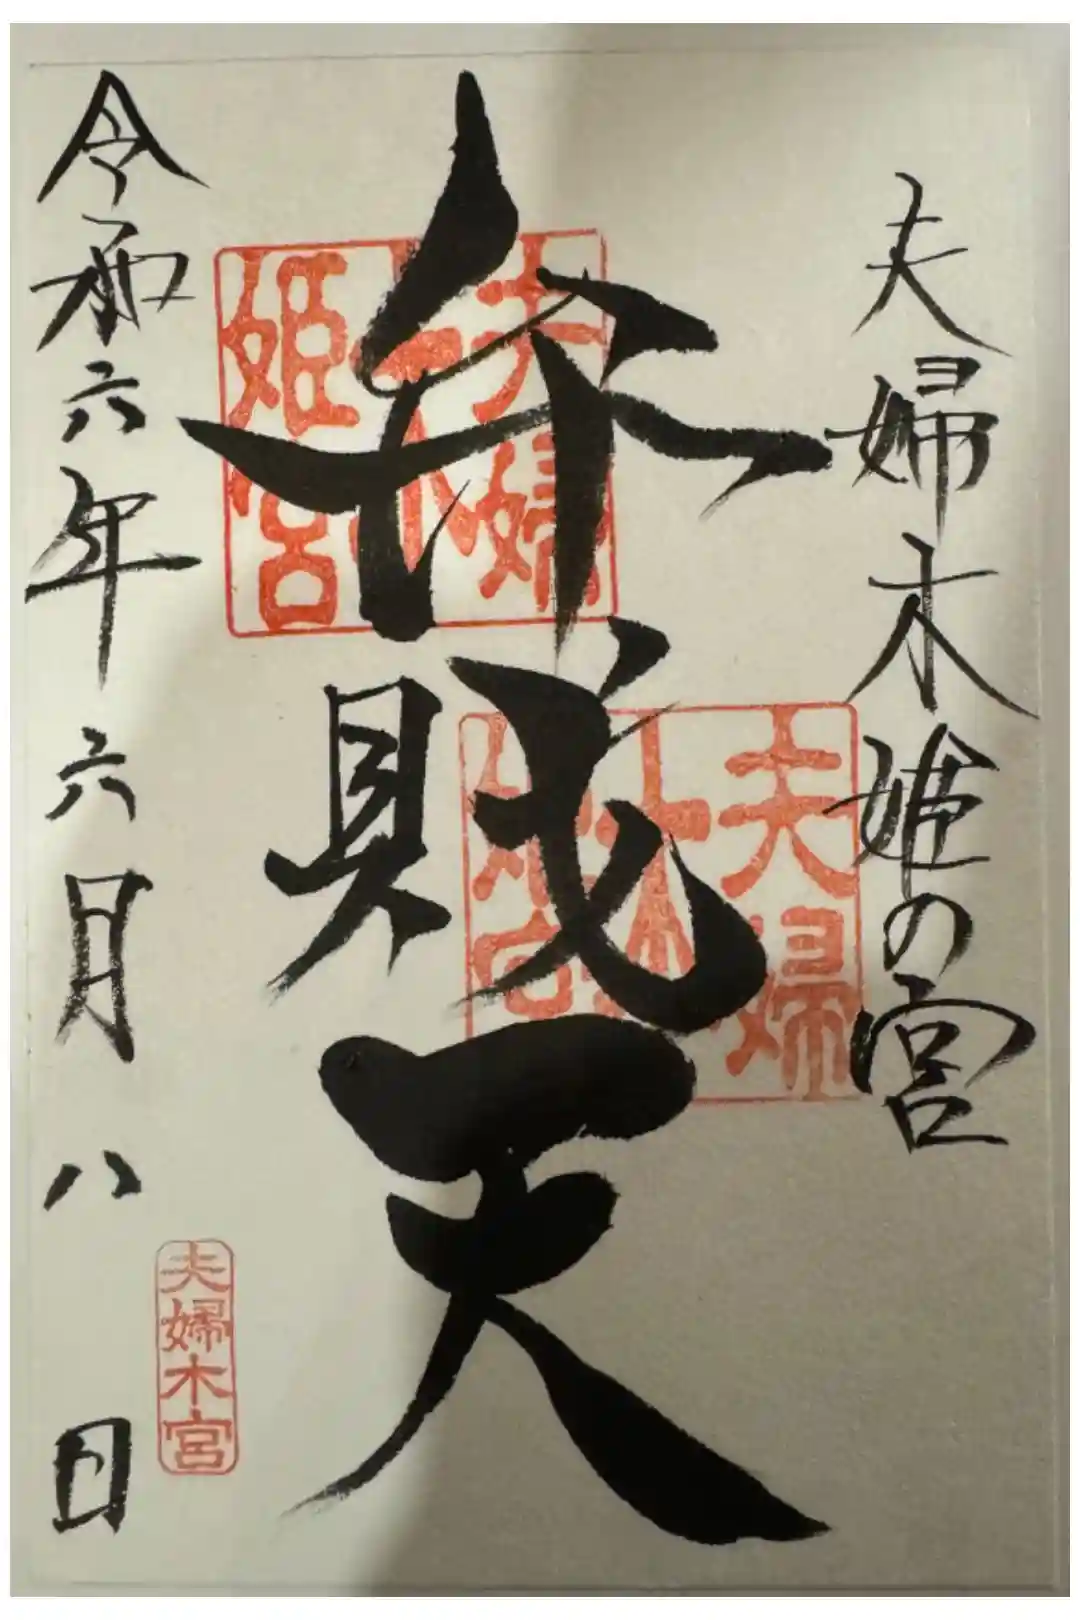 夫婦木姫の宮
弁財天
夫婦
木
姫宮
夫婦
木
姫宮
令和六年六月八日
夫婦木宮